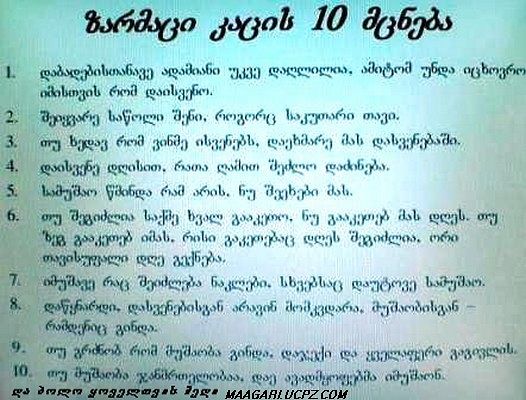 ზარმაცი კაცის 10 მცნება
1. დაბადებისთანავე ადამიანი უკვე დაღლილია, ამიტომ უნდა იცხოვრო
იმისთვის რომ დაისვენო.
2. შეიყვარე საწოლი შენი, როგორც საკუთარი თავი.
3. თუ ხედავ რომ ვინმე ისვენებს, დაეხმარე მას დასვენებაში.
4. დაისვენე დღისით, რათა ღამით შეძლო დაძინება.
5. სამუშაო წმინდა რამ არის, ნუ შეეხები მას.
6. თუ შეგიძლია საქმე ხვალ გააკეთო, ნუ გააკეთებ მას დღეს. თუ
ზეგ გააკეთებ იმას, რისი გაკეთებაც დღეს შეგიძლია, ორი
თავისუფალი დღე გექნება.
7. იმუშავე რაც შეიძლება ნაკლები, სხვებსაც დაუტოვე სამუშაო.
8. დაწყნარდი, დასვენებისგან არავინ მომკვდარა, მუშაობისგან –
რამდენიც გინდა.
9. თუ გრძნობ რომ მუშაობა გინდა, დაჯექი და ყველაფერი გაგივლის.
10. თუ მუშაობა ჯანმრთელობაა, დაე ავადმყოფებმა იმუშაონ.
და ბოლო ყოველთვის მედი MAAGARIUCPZ.COM